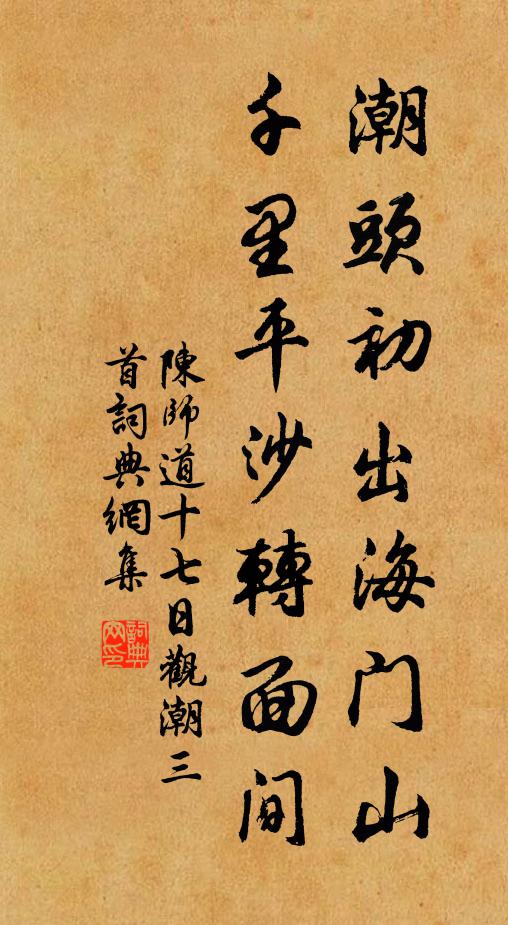 潮頭初出海門山
千里平沙轉面間
陳師道十七日觀潮三
首詞典網集
詞典
網印